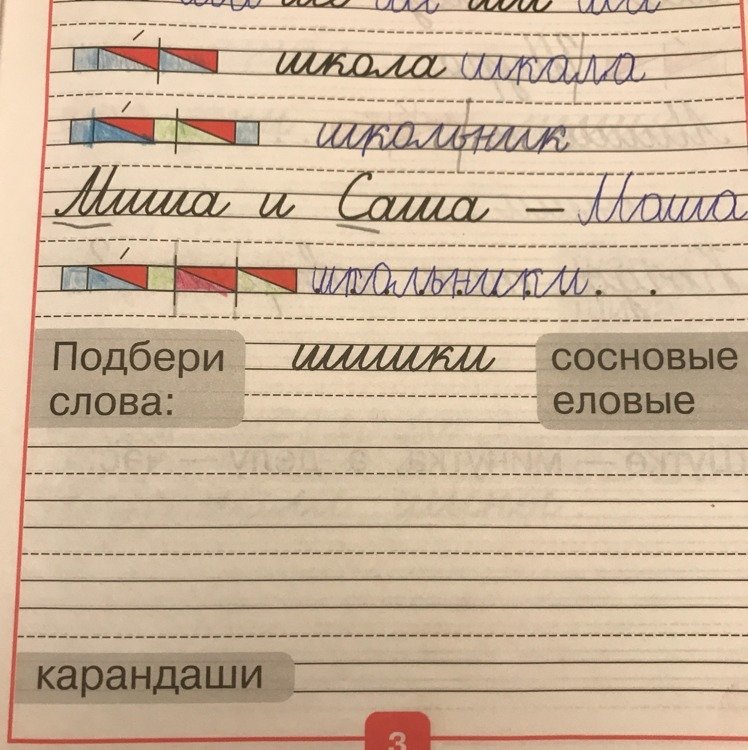 школа школа
школьник
Миша и Саша — Маша
школьники
Подбери слова: шишки сосновые еловые
карандаши
3